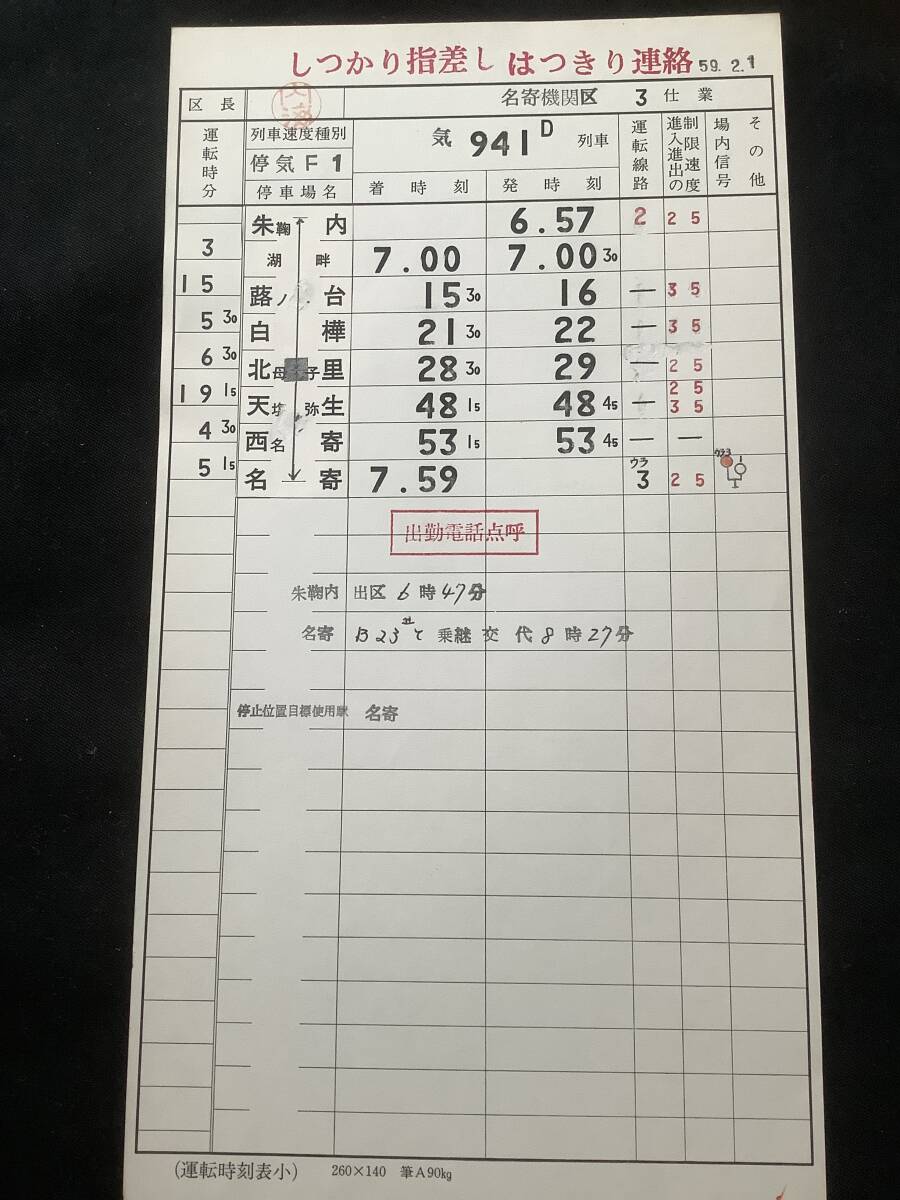 しつかり指差し はつきり連絡 59. 2. 1
区長 名寄機関区 3 仕業
運転時分 列車速度種別 気 941D 列車 運転線路 制限速度 進入進出の 場内信号 その他
停気F1
停車場名 着時刻 発時刻
朱鞠内 6.57 2 25
3 湖畔 7.00 7.00 30
15 蕗ノ台 15 30 16 — 35
5 30 白樺 21 30 22 — 35
6 30 北母子里 28 30 29 — 25
19 15 天塩弥生 48 15 48 45 — 25 35
4 30 西名寄 53 15 53 45 — —
5 15 名寄 7.59 ウラ 3 25 ウラ3
出勤電話点呼
朱鞠内 出区 6時47分
名寄 B23 と 乗継交代 8時27分
停止位置目標使用駅 名寄
(運転時刻表小) 260×140 筆A90kg